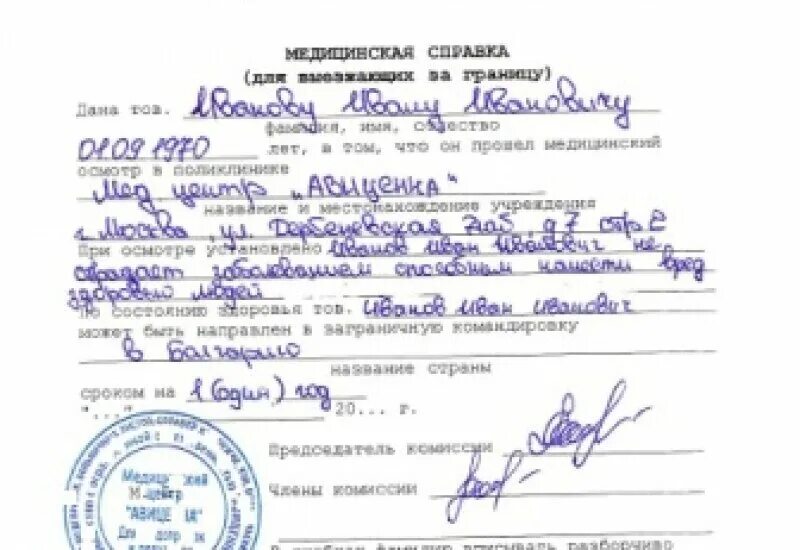 МЕДИЦИНСКАЯ СПРАВКА
(для выезжающих за границу)
Дана тов. Иванову Ивану Ивановичу
фамилия, имя, отчество
01.09 1970 лет, в том, что он прошел медицинский
осмотр в поликлинике
Мед центр "АВИЦЕННА"
название и местонахождение учреждения
г. Москва ул. Дербеневская наб, д 7 стр
При осмотре установлено Иванов Иван Иванович не
страдает заболеванием способным нанести вред
здоровью людей
По состоянию здоровья тов. Иванов Иван Иванович
может быть направлен в заграничную командировку
в Болгарию
название страны
сроком на 1 (один) год
"..." 20... г.
Председатель комиссии
Члены комиссии
Медици кий
центр
"АВИЦЕ
Для
В особая фамилию вписывать разборчиво